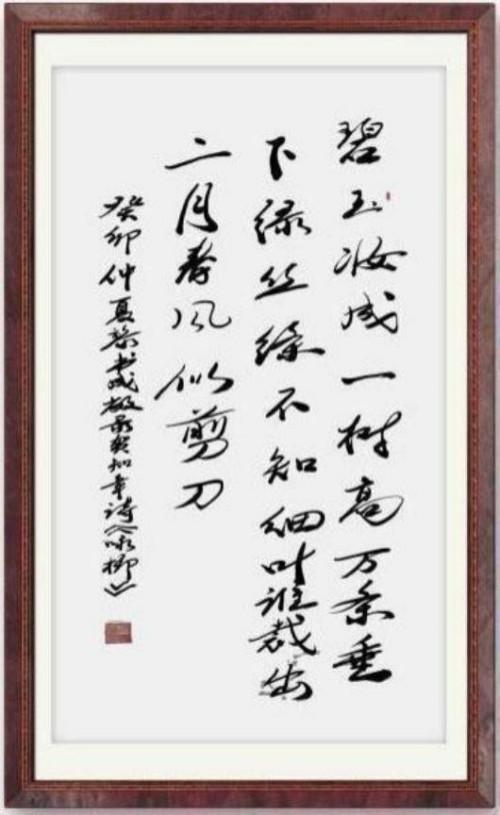 碧玉妆成一树高万条垂
下绿丝绦不知细叶谁裁出
二月春风似剪刀
癸卯仲夏黎书成敬录贺知章诗《咏柳》